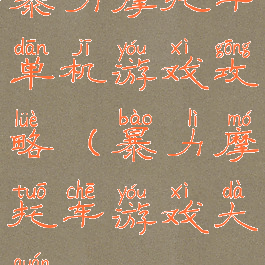 暴力摩托车
dān jī yóu xì gōng
单机游戏攻
lüè bào lì mó
略（暴力摩
tuō chē yóu xì dà
托车游戏大
quán